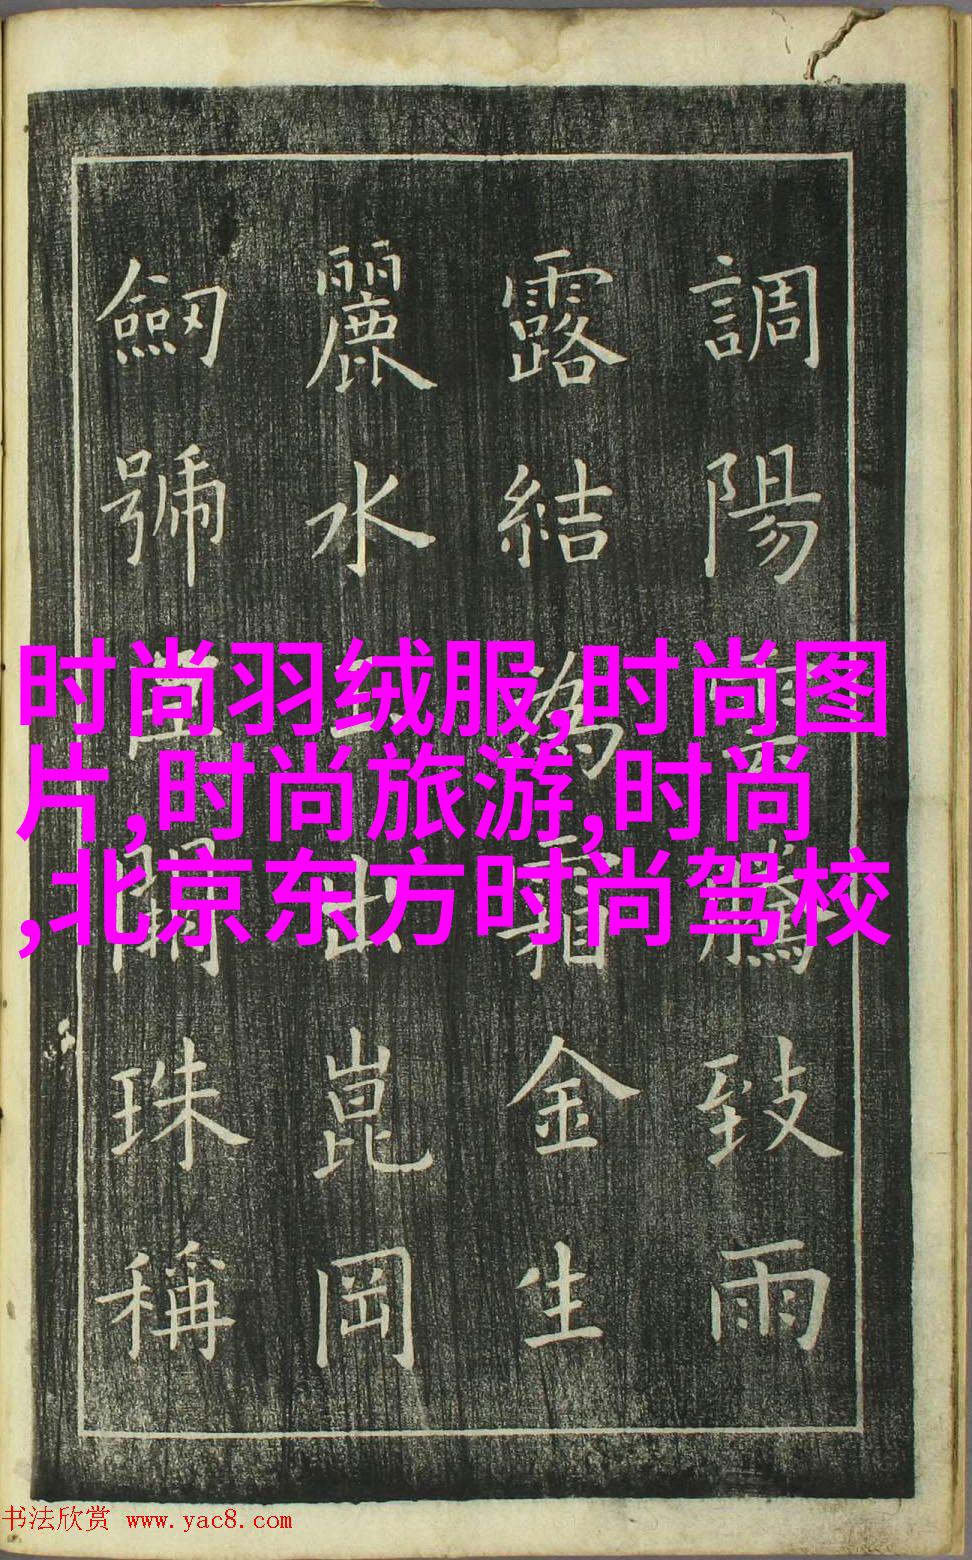 調陽雲騰致雨
露結為霜金生
麗水出崑岡
劒號闕珠稱
时尚羽绒服,时尚图
片,时尚旅游,时尚
,北京东方时尚驾校
书法欣赏 www.yac8.com